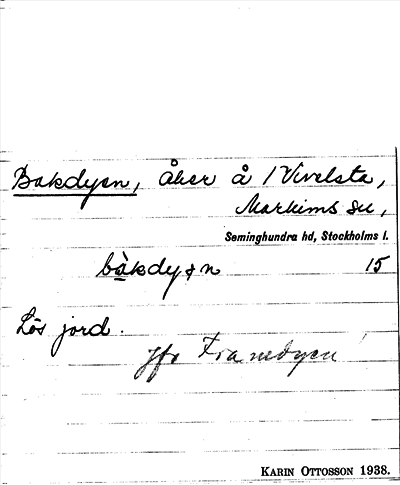 Bakdyen, åker å 1 Vivelsta,
Markims sn,
Seminghundra hd, Stockholms l.
bàkdyən 15
Lös jord.
Jfr Framdyen!
KARIN OTTOSSON 1938.